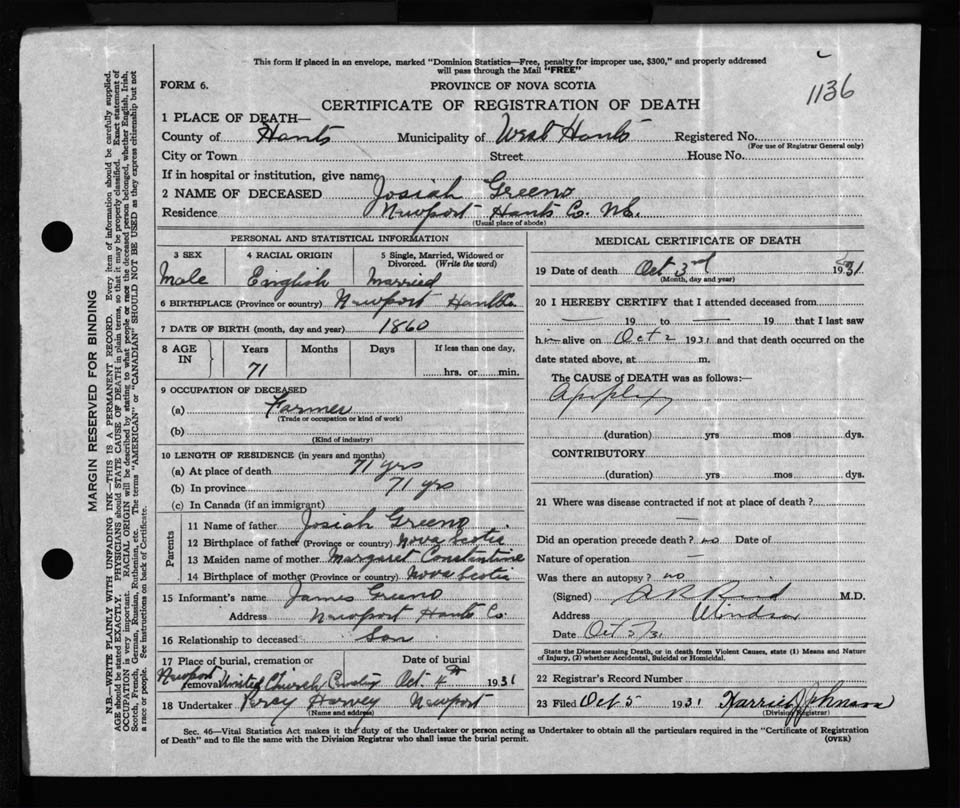 This form if placed in an envelope, marked "Dominion Statistics—Free, penalty for improper use, $300," and properly addressed
will pass through the Mail "FREE"
1136
FORM 6. PROVINCE OF NOVA SCOTIA
CERTIFICATE OF REGISTRATION OF DEATH
1 PLACE OF DEATH—
County of Hants Municipality of West Hants Registered No.
(For use of Registrar General only)
City or Town Street House No.
If in hospital or institution, give name
2 NAME OF DECEASED Josiah Greeno
Residence Newport Hants Co. N.S.
(Usual place of abode)
PERSONAL AND STATISTICAL INFORMATION
3 SEX 4 RACIAL ORIGIN 5 Single, Married, Widowed or
Divorced. (Write the word)
Male English Married
6 BIRTHPLACE (Province or country) Newport Hants Co.
7 DATE OF BIRTH (month, day and year) 1860
8 AGE Years Months Days If less than one day,
IN 71 hrs. or min.
9 OCCUPATION OF DECEASED
(a) Farmer
(Trade or occupation or kind of work)
(b)
(Kind of industry)
10 LENGTH OF RESIDENCE (in years and months)
(a) At place of death 71 yrs
(b) In province 71 yrs
(c) In Canada (if an immigrant)
Parents
11 Name of father Josiah Greeno
12 Birthplace of father (Province or country) Nova Scotia
13 Maiden name of mother Margaret Constantine
14 Birthplace of mother (Province or country) Nova Scotia
15 Informant's name James Greeno
Address Newport Hants Co.
16 Relationship to deceased Son
17 Place of burial, cremation or Date of burial
removal Newport United Church Cemetery Oct. 4th 1931
18 Undertaker Percy Harvey Newport
(Name and address)
MEDICAL CERTIFICATE OF DEATH
19 Date of death Oct 3rd 1931
(Month, day and year)
20 I HEREBY CERTIFY that I attended deceased from
— 19 to — 19 that I last saw
him alive on Oct 2 1931 and that death occurred on the
date stated above, at m.
The CAUSE of DEATH was as follows:—
Apoplexy
(duration) yrs mos dys.
CONTRIBUTORY
(duration) yrs mos dys.
21 Where was disease contracted if not at place of death?
—
Did an operation precede death? no Date of
Nature of operation —
Was there an autopsy? no
(Signed) Reid M.D.
Address Windsor
Date Oct 5/31
State the Disease causing Death, or in death from Violent Causes, state (1) Means and Nature
of Injury, (2) whether Accidental, Suicidal or Homicidal.
22 Registrar's Record Number
23 Filed Oct 5 1931 Harriet Johnson
(Division Registrar)
Sec. 46—Vital Statistics Act makes it the duty of the Undertaker or person acting as Undertaker to obtain all the particulars required in the "Certificate of Registration
of Death" and to file the same with the Division Registrar who shall issue the burial permit. (OVER)
MARGIN RESERVED FOR BINDING
N.B.—WRITE PLAINLY WITH UNFADING INK—THIS IS A PERMANENT RECORD. Every item of information should be carefully supplied.
AGE should be stated EXACTLY. PHYSICIANS should STATE CAUSE OF DEATH in plain terms, so that it may be properly classified. Exact statement of
OCCUPATION is very important. RACIAL ORIGIN will be described by stating to what people or race the deceased person belonged, whether English, Irish,
Scotch, French, German, Russian, Ruthenian, etc. The terms "AMERICAN" or "CANADIAN" SHOULD NOT BE USED as they express citizenship but not
a race or people. See instructions on back of Certificate.